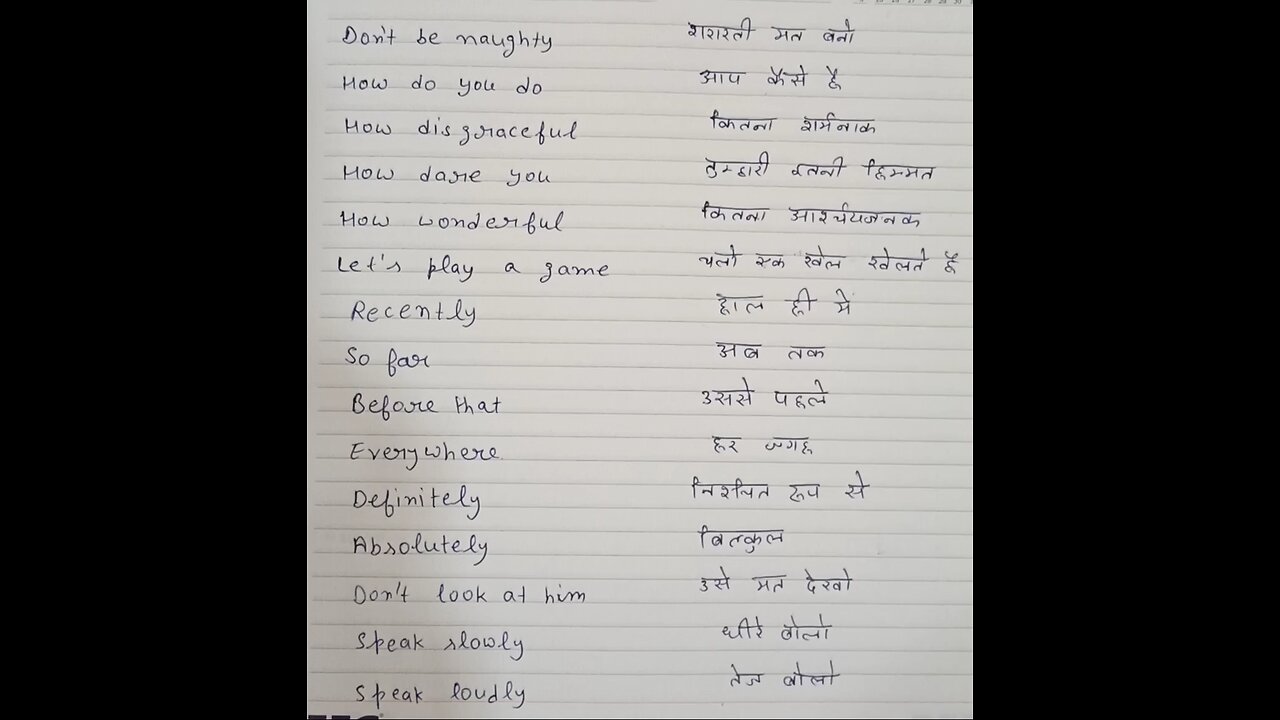 Don't be naughty शरारती मत बनो
How do you do आप कैसे है
How disgraceful कितना शर्मनाक
How dare you तुम्हारी इतनी हिम्मत
How wonderful कितना आश्र्चयजनक
Let's play a game चलो एक खेल खेलते है
Recently हाल ही में
So far अब तक
Before that उससे पहले
Everywhere हर जगह
Definitely निश्चित रूप से
Absolutely बिल्कुल
Don't look at him उसे मत देखो
Speak slowly धीरे बोलो
Speak loudly तेज बोलो